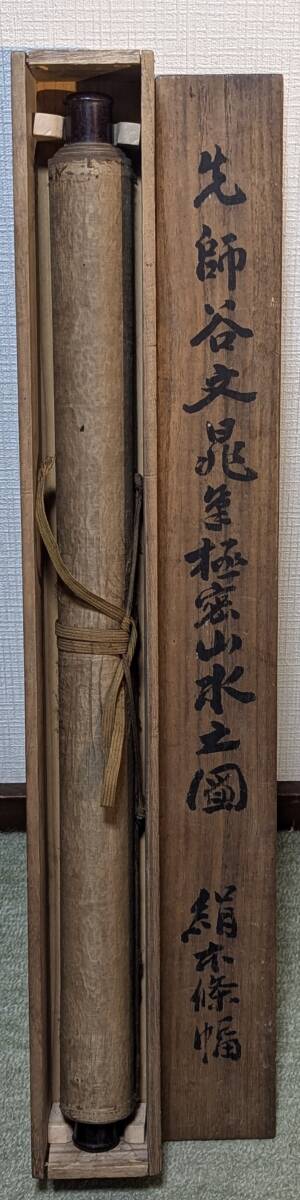 先師谷文晁筆極密山水之圖
絹本條幅